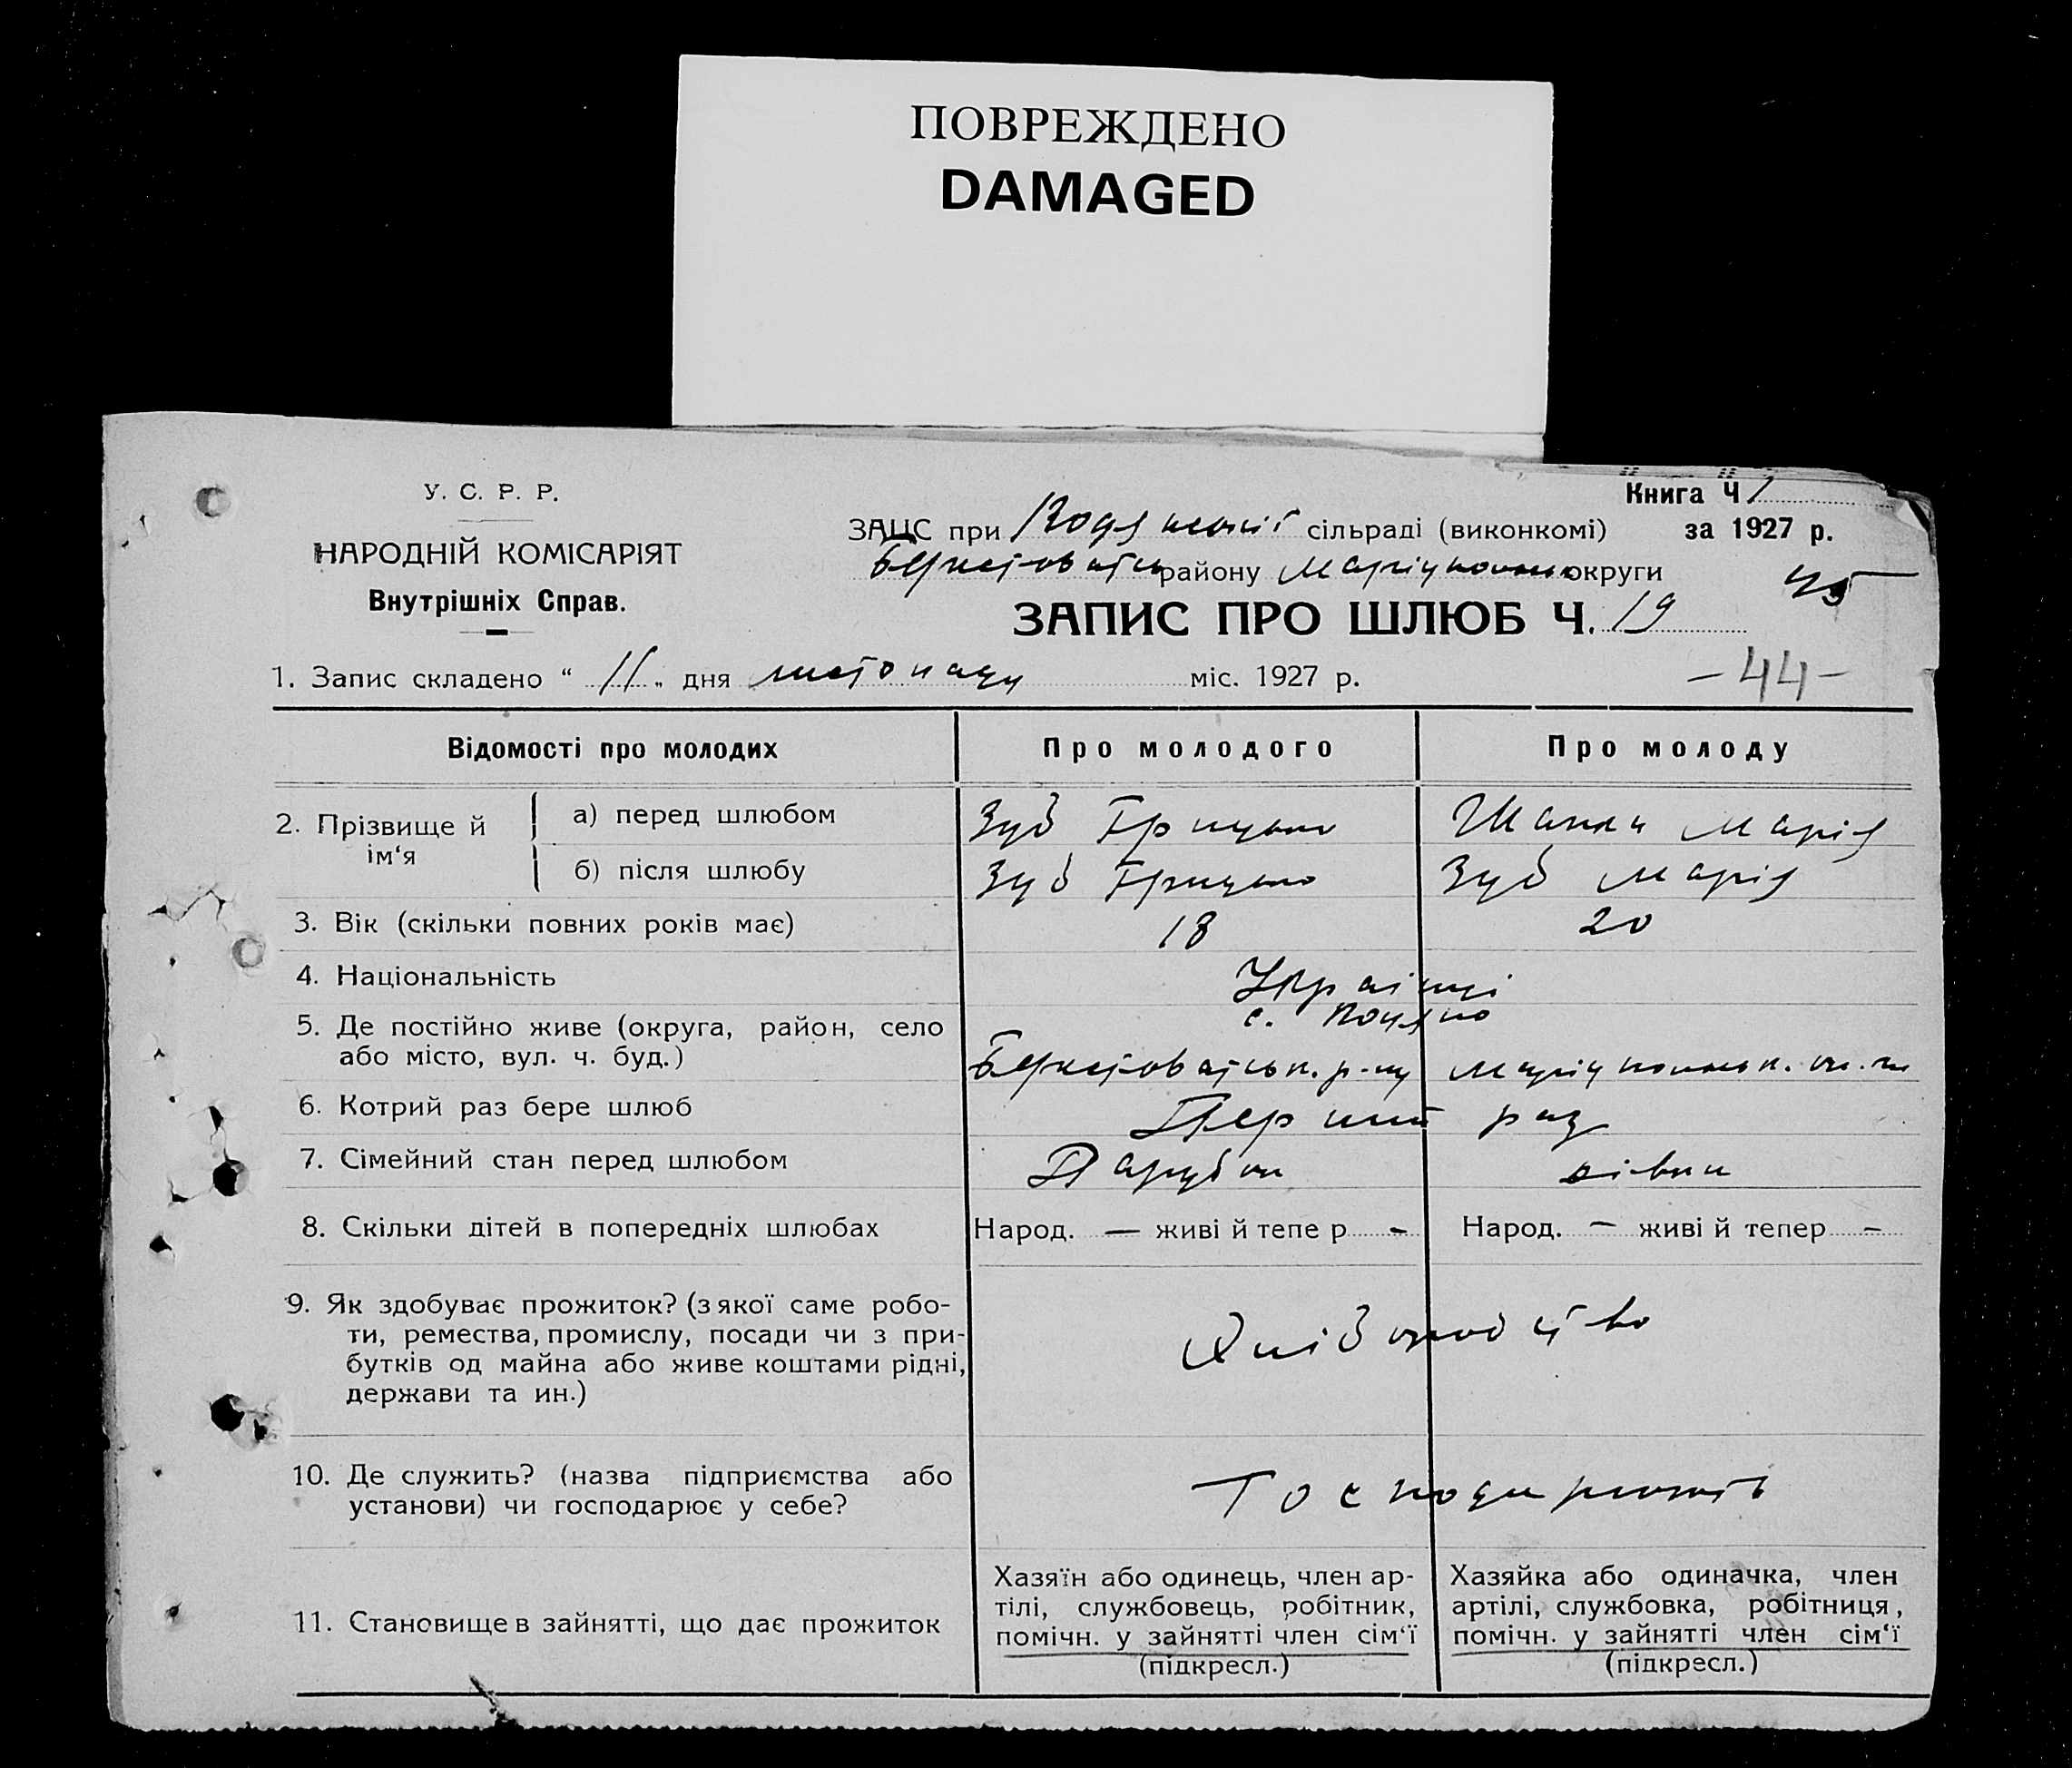 ПОВРЕЖДЕНО
DAMAGED
У. С. Р. Р.
НАРОДНІЙ КОМІСАРІЯТ
Внутрішніх Справ.
Книга Ч 1
ЗАЦС при сільраді (виконкомі) за 1927 р.
району округи
ЗАПИС ПРО ШЛЮБ Ч. 19
1. Запис складено “ 11 „ дня листопаду міс. 1927 р.
-44-
Відомості про молодих Про молодого Про молоду
2. Прізвище й ім‘я
а) перед шлюбом Зуб Грицько Марія
б) після шлюбу Зуб Грицько Зуб Марія
3. Вік (скільки повних років має) 18 20
4. Національність Українці
5. Де постійно живе (округа, район, село
або місто, вул. ч. буд.)
с.
6. Котрий раз бере шлюб Перший раз
7. Сімейний стан перед шлюбом Парубок дівка
8. Скільки дітей в попередніх шлюбах Народ. — живі й тепер - Народ. — живі й тепер -
9. Як здобуває прожиток? (з якої саме робо-
ти, ремества, промислу, посади чи з при-
бутків од майна або живе коштами рідні,
держави та ин.)
Хліборобство
10. Де служить? (назва підприємства або
установи) чи господарює у себе?
Господарюють
11. Становище в зайнятті, що дає прожиток
Хазяїн або одинець, член ар-
тілі, службовець, робітник,
помічн. у зайнятті член сім‘ї
(підкресл.)
Хазяйка або одиначка, член
артілі, службовка, робітниця,
помічн. у зайнятті член сім‘ї
(підкресл.)